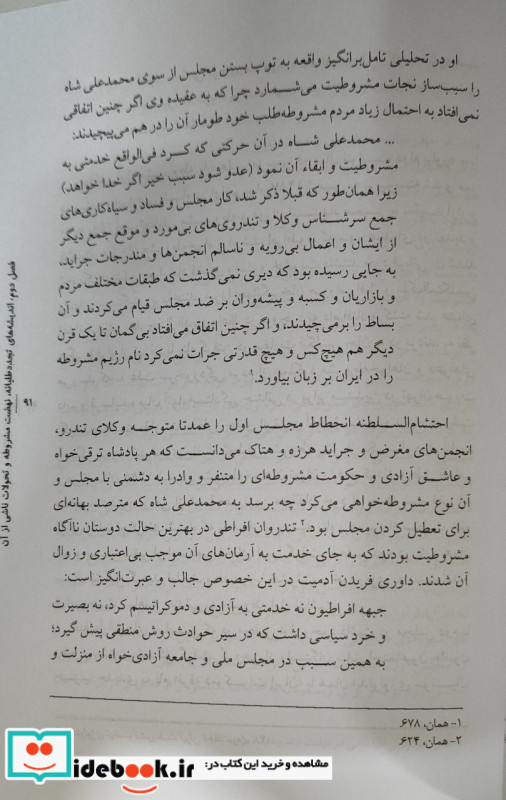 او در تحلیلی تامل‌برانگیز واقعه به توپ بستن مجلس از سوی محمدعلی شاه
را سبب‌ساز نجات مشروطیت می‌شمارد چرا که به عقیده وی اگر چنین اتفاقی
نمی‌افتاد به احتمال زیاد مردم مشروطه‌طلب خود طومار آن را در هم می‌پیچیدند:
... محمدعلی شاه در آن حرکتی که کرد فی‌الواقع خدمتی به
مشروطیت و ابقاء آن نمود (عدو شود سبب خیر اگر خدا خواهد)
زیرا همان‌طور که قبلا ذکر شد، کار مجلس و فساد و سیاه‌کاری‌های
جمع سرشناس وکلا و تندروی‌های بی‌مورد و موقع جمع دیگر
از ایشان و اعمال بی‌رویه و ناسالم انجمن‌ها و مندرجات جراید،
به جایی رسیده بود که دیری نمی‌گذشت که طبقات مختلف مردم
و بازاریان و کسبه و پیشه‌وران بر ضد مجلس قیام می‌کردند و آن
بساط را برمی‌چیدند، و اگر چنین اتفاق می‌افتاد بی‌گمان تا یک قرن
دیگر هم هیچ‌کس و هیچ قدرتی جرات نمی‌کرد نام رژیم مشروطه
را در ایران بر زبان بیاورد.۱
احتشام‌السلطنه انحطاط مجلس اول را عمدتا متوجه وکلای تندرو،
انجمن‌های مغرض و جراید هرزه و هتاک می‌دانست که هر پادشاه ترقی‌خواه
و عاشق آزادی و حکومت مشروطه‌ای را متنفر و وادرا به دشمنی با مجلس و
آن نوع مشروطه‌خواهی می‌کرد چه برسد به محمدعلی شاه که مترصد بهانه‌ای
برای تعطیل کردن مجلس بود.۲ تندروان افراطی در بهترین حالت دوستان ناآگاه
مشروطیت بودند که به جای خدمت به آرمان‌های آن موجب بی‌اعتباری و زوال
آن شدند. داوری فریدن آدمیت در این خصوص جالب و عبرت‌انگیز است:
جبهه افراطیون نه خدمتی به آزادی و دموکراتیسم کرد، نه بصیرت
و خرد سیاسی داشت که در سیر حوادث روش منطقی پیش گیرد؛
به همین سبب در مجلس ملی و جامعه آزادی‌خواه از منزلت و
۱- همان، ۶۷۸.
۲- همان، ۶۲۴.
فصل دوم: اندیشه‌های تجددطلبانه، نهضت مشروطه و تحولات ناشی از آن
۹۱
مشاهده و خرید این کتاب در:
idebook.ir